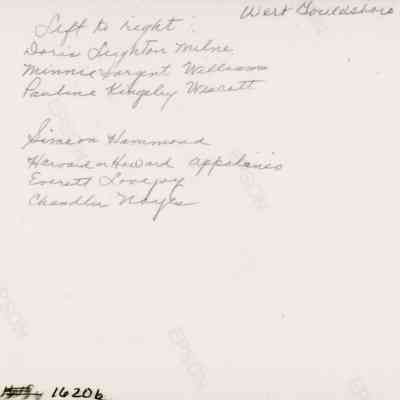 West Gouldsboro
Left to right:
Doris Leighton Milne
Minnie Sargent Williams
Pauline Kingsley Wescott
Simeon Hammond
Harvard or Howard Appolonio
Everett Lovejoy
Chandler Noyes
1620b
EPSON
EPSON
EPSON
EPSON
EPSON